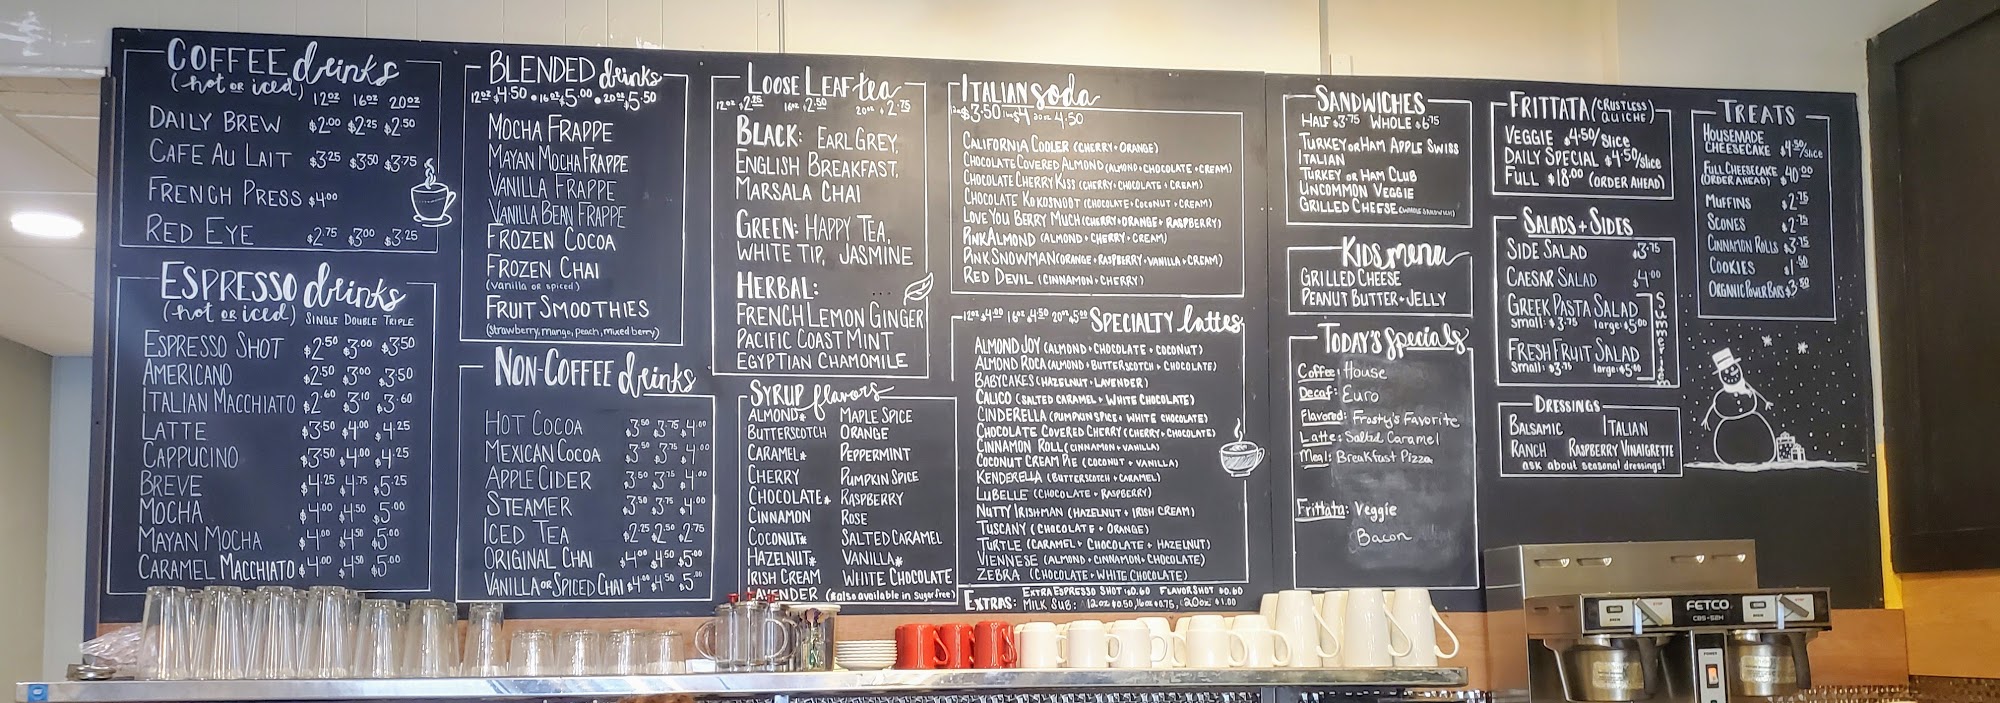 COFFEE drinks
(hot or iced) 12oz 16oz 20oz
DAILY BREW $2.00 $2.25 $2.50
CAFE AU LAIT $3.25 $3.50 $3.75
FRENCH PRESS $4.00
RED EYE $2.75 $3.00 $3.25
ESPRESSO drinks
(hot or iced) SINGLE DOUBLE TRIPLE
ESPRESSO SHOT $2.50 $3.00 $3.50
AMERICANO $2.50 $3.00 $3.50
ITALIAN MACCHIATO $2.60 $3.10 $3.60
LATTE $3.50 $4.00 $4.25
CAPPUCINO $3.50 $4.00 $4.25
BREVE $4.25 $4.75 $5.25
MOCHA $4.00 $4.50 $5.00
MAYAN MOCHA $4.00 $4.50 $5.00
CARAMEL MACCHIATO $4.00 $4.50 $5.00
BLENDED drinks
12oz $4.50 • 16oz $5.00 • 20oz $5.50
MOCHA FRAPPE
MAYAN MOCHA FRAPPE
VANILLA FRAPPE
VANILLA BEAN FRAPPE
FROZEN COCOA
FROZEN CHAI
(vanilla or spiced)
FRUIT SMOOTHIES
(strawberry, mango, peach, mixed berry)
NON-COFFEE drinks
HOT COCOA $3.50 $3.75 $4.00
MEXICAN COCOA $3.50 $3.75 $4.00
APPLE CIDER $3.50 $3.75 $4.00
STEAMER $3.50 $3.75 $4.00
ICED TEA $2.25 $2.50 $2.75
ORIGINAL CHAI $4.00 $4.50 $5.00
VANILLA OR SPICED CHAI $4.00 $4.50 $5.00
LOOSE LEAF tea
12oz $2.25 16oz $2.50 20oz $2.75
BLACK: EARL GREY,
ENGLISH BREAKFAST,
MARSALA CHAI
GREEN: HAPPY TEA,
WHITE TIP, JASMINE
HERBAL:
FRENCH LEMON GINGER
PACIFIC COAST MINT
EGYPTIAN CHAMOMILE
SYRUP flavors
ALMOND* MAPLE SPICE
BUTTERSCOTCH ORANGE
CARAMEL* PEPPERMINT
CHERRY PUMPKIN SPICE
CHOCOLATE* RASPBERRY
CINNAMON ROSE
COCONUT* SALTED CARAMEL
HAZELNUT* VANILLA*
IRISH CREAM WHITE CHOCOLATE
LAVENDER (*also available in sugar free)
ITALIAN soda
12oz $3.50 16oz $4 20oz 4.50
CALIFORNIA COOLER (CHERRY + ORANGE)
CHOCOLATE COVERED ALMOND (ALMOND + CHOCOLATE + CREAM)
CHOCOLATE CHERRY KISS (CHERRY + CHOCOLATE + CREAM)
CHOCOLATE KOKOSNOOT (CHOCOLATE + COCONUT + CREAM)
LOVE YOU BERRY MUCH (CHERRY + ORANGE + RASPBERRY)
PINK ALMOND (ALMOND + CHERRY + CREAM)
PINK SNOWMAN (ORANGE + RASPBERRY + VANILLA + CREAM)
RED DEVIL (CINNAMON + CHERRY)
12oz $4.00 16oz $4.50 20oz 5.00 SPECIALTY lattes
ALMOND JOY (ALMOND + CHOCOLATE + COCONUT)
ALMOND ROCA (ALMOND + BUTTERSCOTCH + CHOCOLATE)
BABYCAKES (HAZELNUT + LAVENDER)
CALICO (SALTED CARAMEL + WHITE CHOCOLATE)
CINDERELLA (PUMPKIN SPICE + WHITE CHOCOLATE)
CHOCOLATE COVERED CHERRY (CHERRY + CHOCOLATE)
CINNAMON ROLL (CINNAMON + VANILLA)
COCONUT CREAM PIE (COCONUT + VANILLA)
KENDERELLA (BUTTERSCOTCH + CARAMEL)
LUBELLE (CHOCOLATE + RASPBERRY)
NUTTY IRISHMAN (HAZELNUT + IRISH CREAM)
TUSCANY (CHOCOLATE + ORANGE)
TURTLE (CARAMEL + CHOCOLATE + HAZELNUT)
VIENNESE (ALMOND + CINNAMON + CHOCOLATE)
ZEBRA (CHOCOLATE + WHITE CHOCOLATE)
EXTRAS: EXTRA ESPRESSO SHOT $0.60 FLAVOR SHOT $0.60
MILK SUB: 12oz $0.50, 16oz $0.75, 20oz $1.00
SANDWICHES
HALF $3.75 WHOLE $6.75
TURKEY OR HAM APPLE SWISS
ITALIAN
TURKEY OR HAM CLUB
UNCOMMON VEGGIE
GRILLED CHEESE (WHOLE SANDWICH)
KIDS menu
GRILLED CHEESE
PEANUT BUTTER + JELLY
TODAY'S Specials
Coffee: House
Decaf: Euro
Flavored: Frosty's Favorite
Latte: Salted Caramel
Meal: Breakfast Pizza
Frittata: Veggie
Bacon
FRITTATA (CRUSTLESS QUICHE)
VEGGIE $4.50/slice
DAILY SPECIAL $4.50/slice
FULL $18.00 (ORDER AHEAD)
SALADS + SIDES
SIDE SALAD $3.75
CAESAR SALAD $4.00
GREEK PASTA SALAD
small: $3.75 large: $5.00
FRESH FRUIT SALAD
small: $3.75 large: $5.00
Summertime
DRESSINGS
BALSAMIC ITALIAN
RANCH RASPBERRY VINAIGRETTE
ask about seasonal dressings!
TREATS
HOUSEMADE CHEESECAKE $4.50/slice
FULL CHEESECAKE (ORDER AHEAD) $40.00
MUFFINS $2.75
SCONES $2.75
CINNAMON ROLLS $3.75
COOKIES $1.50
ORGANIC POWER BARS $3.50
FETCO
CBS-52H
POWER